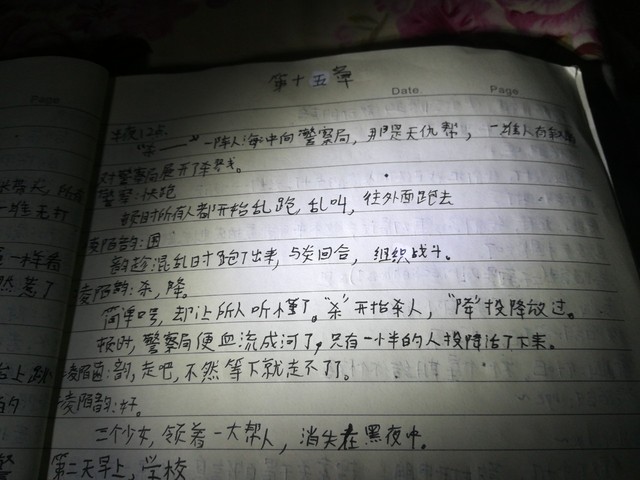 Page
第十五章
Date Page
半夜12点.
"杀——" 一阵人海冲向警察局, 那是天仇帮, 一堆人有
对警察局展开了
警察:快跑
顿时所有人都开始乱跑,乱叫, 往外面跑去
凌陌韵:围
韵趁混乱时跑了出来, 与炎回合, 组织战斗。
凌陌韵:杀,降。
简单口号, 却让所人听懂了。"杀"开始杀人, "降"投降放过。
顿时, 警察局便血流成河了, 只有一小半的人投降活了下来。
凌陌:韵, 走吧, 不然等下就走不了了。
凌陌韵:好。
三个少女, 领着一大帮人, 消失在黑夜中。
第二天早上, 学校
一堆无打
一样看
惹了
台上跳
的
警